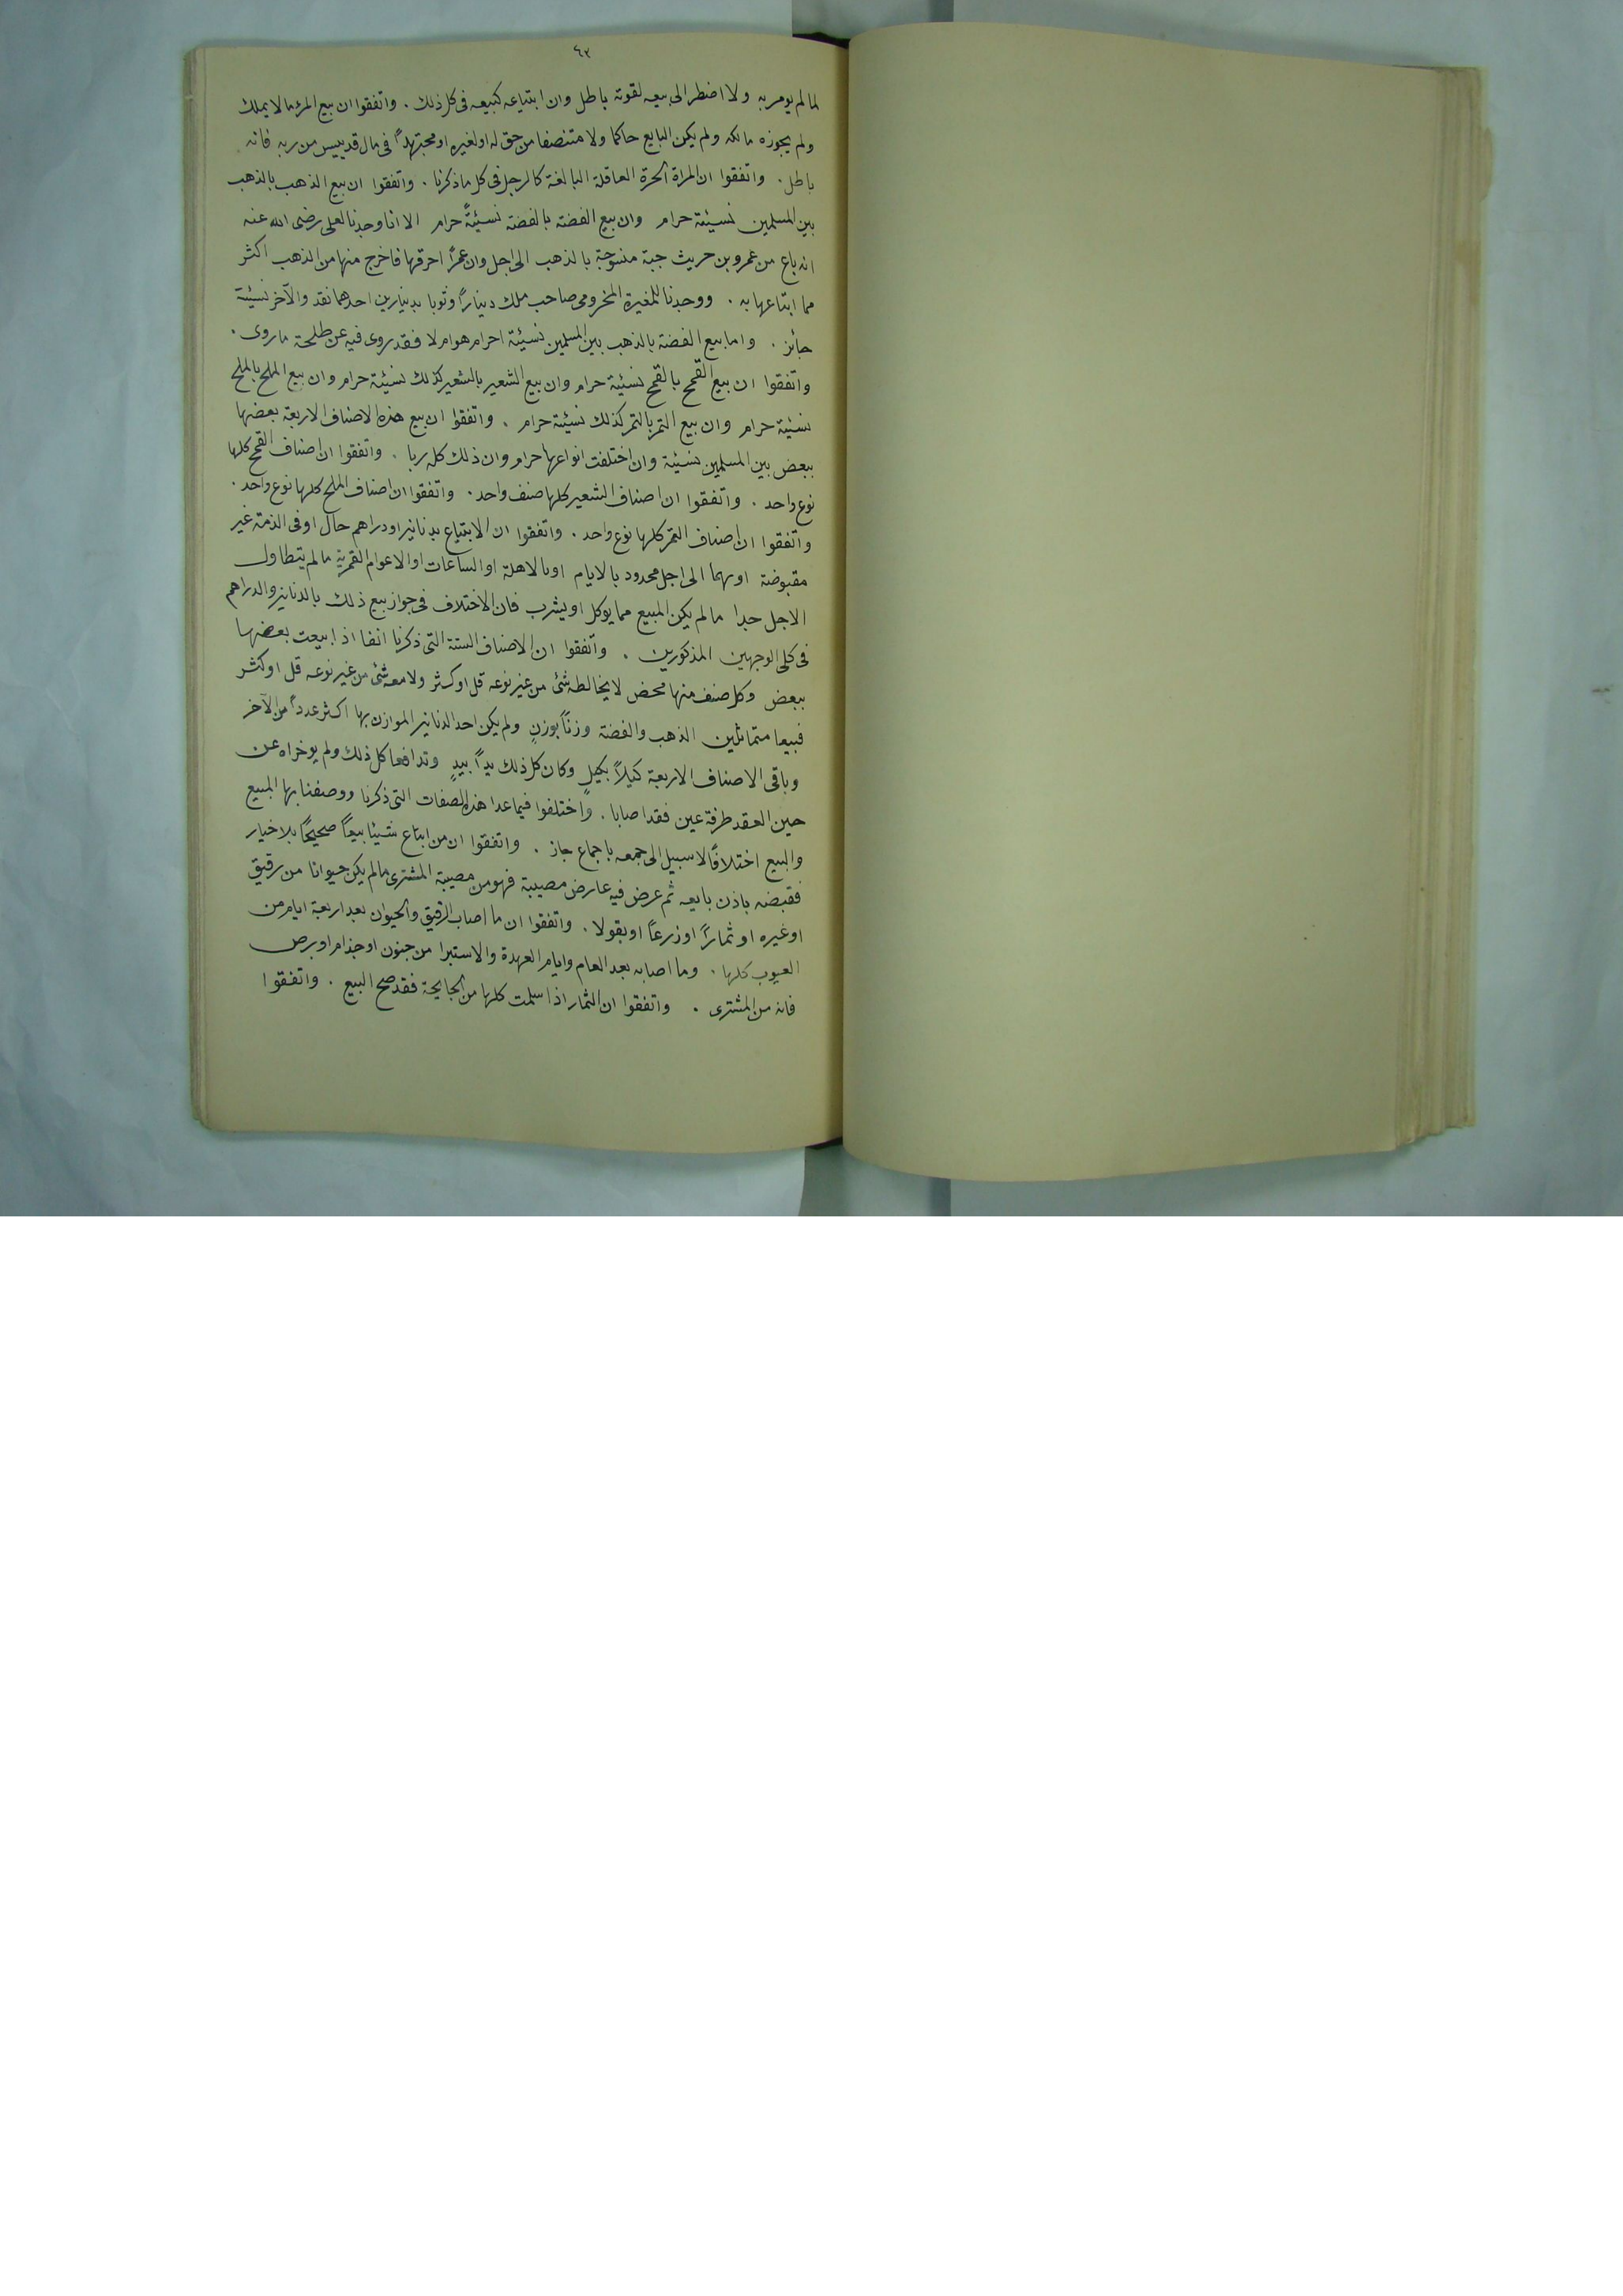 ٤٢
لما لم يومر به ولا اضطر الى بيعه لقوته باطل وان ابتياعه كبيعه فى كل ذلك . واتفقوا ان بيع المرء مالا يملك
ولم يجوزه مالكه ولم يكن البايع حاكما ولا متنصفا من حق له او لغيره او مجتهداً فى مال قد ييس من ربه فانه
باطل . واتفقوا ان المراة الحرة العاقلة البالغة كالرجل فى كل ما ذكرنا . واتفقوا ان بيع الذهب بالذهب
بين المسلمين نسيئة حرام وان بيع الفضة بالفضة نسيئةً حرام الا انا وجدنا لعلى رضى الله عنه
انه باع من عمرو بن حريث جبة منسوجة بالذهب الى اجل وان عمرًا احرقها فاخرج منها من الذهب اكثر
مما ابتاعها به . ووجدنا للمغيرة المخرومى صاحب ملك ديناراً وثوبا بدينارين احدهما نقد والآخر نسيئة
جائز . واما بيع الفضة بالذهب بين المسلمين نسيئة احرام هو ام لا فقد روى فيه عن طلحة ما روى .
واتفقوا ان بيع القمح بالقمح نسيئة حرام وان بيع الشعير بالشعير كذلك نسيئة حرام وان بيع الملح بالملح
نسيئة حرام وان بيع التمر بالتمر كذلك نسيئة حرام . واتفقوا ان بيع هذه الاصناف الاربعة بعضها
ببعض بين المسلمين نسيئة وان اختلفت انواعها حرام وان ذلك كله ربا . واتفقوا ان اصناف القمح كلها
نوع واحد . واتفقوا ان اصناف الشعير كلها صنف واحد . واتفقوا ان اصناف الملح كلها نوع واحد .
واتفقوا ان اصناف التمر كلها نوع واحد . واتفقوا ان الابتياع بدنانير او دراهم حال او فى الذمة غير
مقبوضة او بهما الى اجل محدود بالايام او بالاهلة او الساعات او الاعوام القمرية ما لم يتطاول
الاجل جدا ما لم يكن المبيع مما يوكل او يشرب فان الاختلاف فى جواز بيع ذلك بالدنانير والدراهم
فى كلى الوجهين المذكورين . واتفقوا ان الاصناف الستة التى ذكرنا انفا اذا بيعت بعضها
ببعض وكل صنف منها محض لا يخالطه شئ من غير نوعه قل او كثر ولا معه شئ من غير نوعه قل او كثر
فبيعا متماثلين الذهب والفضة وزناً بوزنٍ ولم يكن احد الدنانير الموازن بها اكثر عدداً من الآخر
وباقى الاصناف الاربعة كيلاً بكيلٍ وكان كل ذلك يداً بيدٍ وتدافعا كل ذلك ولم يوخراه عن
حين العقد طرفة عين فقد اصابا . واختلفوا فيما عدا هذه الصفات التى ذكرنا ووصفنا بها المبيع
والبيع اختلافًا لا سبيل الى جمعه باجماع جاز . واتفقوا ان من ابتاع شيئا بيعاً صحيحًا بلا خيار
فقبضه باذن بايعه ثم عرض فيه عارض مصيبة فهو من مصيبة المشترى ما لم يكن حيوانا من رقيق
او غيره او ثماراً او زرعاً او بقولا . واتفقوا ان ما اصاب الرقيق والحيوان بعد اربعة ايام من
العيوب كلها . وما اصابه بعد العام وايام العهدة والاستبرا من جنون او جذام او برص
فانه من المشترى . واتفقوا ان الثمار اذا سلمت كلها من الجايحة فقد صح البيع . واتفقوا